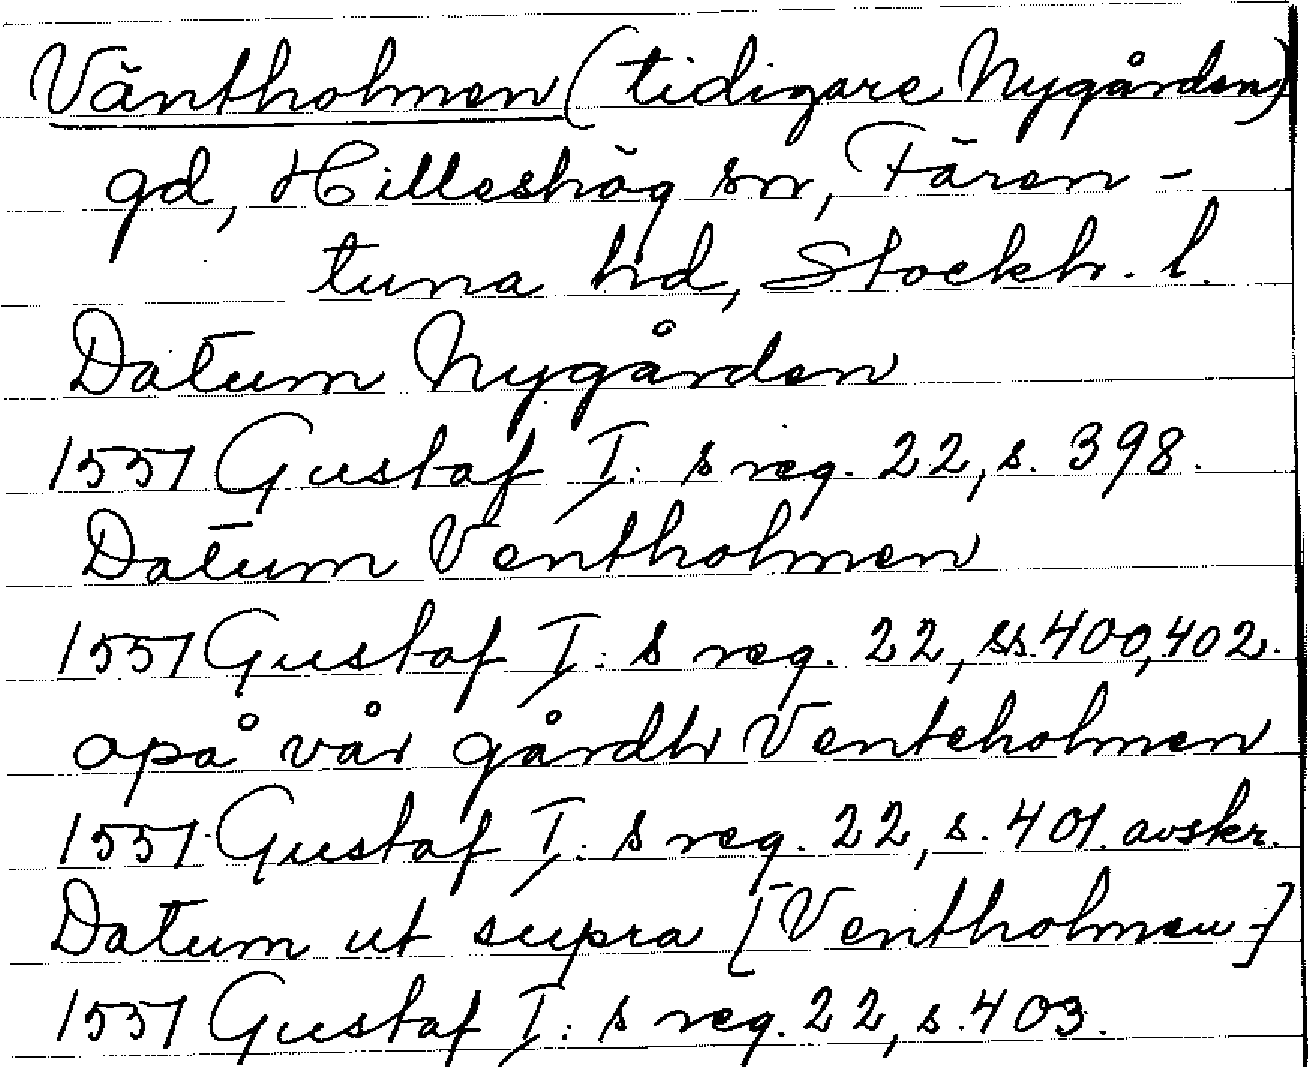 Väntholmen (tidigare Nygården)
gd, Hilleshög sn, Fären-
tuna hd, Stockh. l.
Datum Nygården
1551 Gustaf I: s reg. 22, s. 398.
Datum Ventholmen
1551 Gustaf I: s reg. 22, ss. 400, 402.
opå vår gårdh Venteholmen
1551 Gustaf I: s reg. 22, s. 401. avskr.
Datum ut supra [Ventholmen-]
1551 Gustaf I: s reg. 22, s. 403.